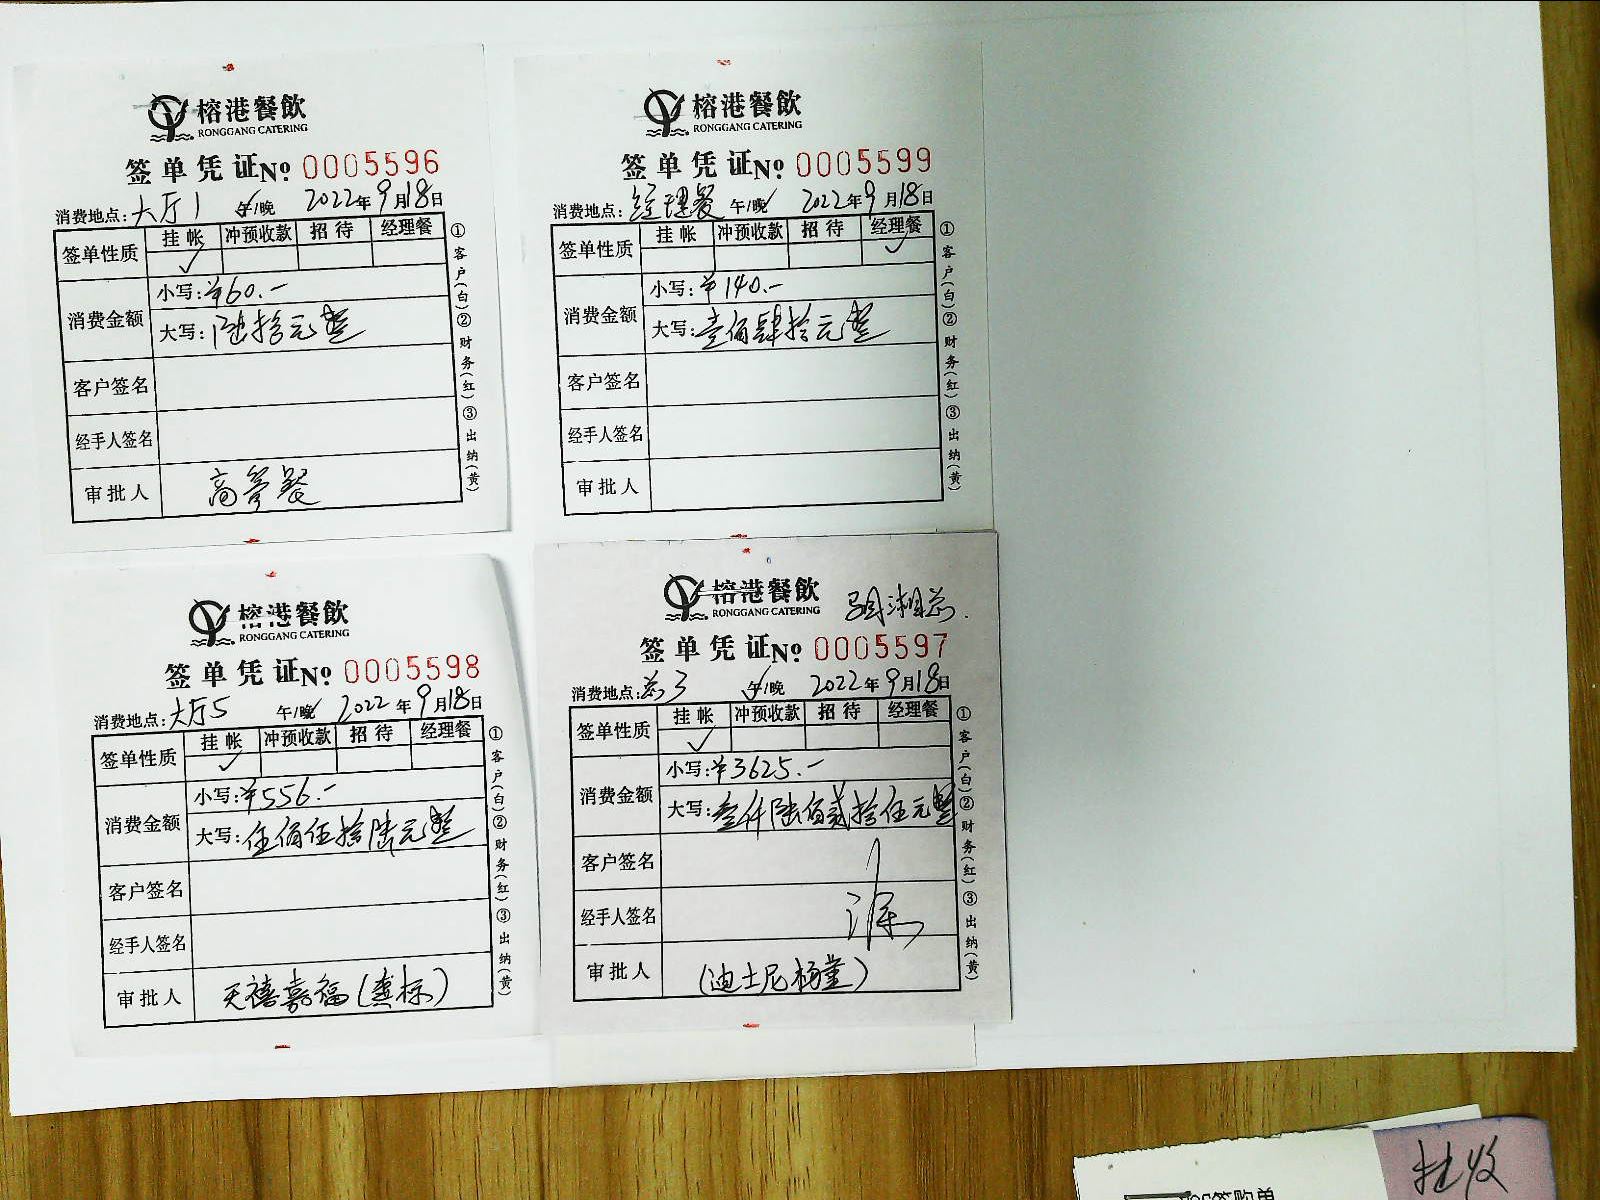 榕港餐飲
RONGGANG CATERING
签单凭证No 0005596
消费地点:大厅1 午/晚 2022年9月18日
签单性质 挂帐 冲预收款 招待 经理餐
✓
消费金额 小写:¥60.-
大写:陆拾元整
客户签名
经手人签名
审批人 高管餐
①客户(白)②财务(红)③出纳(黄)
榕港餐飲
RONGGANG CATERING
签单凭证No 0005599
消费地点:经理餐 午/晚 2022年9月18日
签单性质 挂帐 冲预收款 招待 经理餐
✓
消费金额 小写:¥140.-
大写:壹佰肆拾元整
客户签名
经手人签名
审批人
①客户(白)②财务(红)③出纳(黄)
榕港餐飲
RONGGANG CATERING
签单凭证No 0005598
消费地点:大厅5 午/晚 2022年9月18日
签单性质 挂帐 冲预收款 招待 经理餐
✓
消费金额 小写:¥556.-
大写:伍佰伍拾陆元整
客户签名
经手人签名
审批人 天禧嘉福(龚标)
①客户(白)②财务(红)③出纳(黄)
榕港餐飲
RONGGANG CATERING
签单凭证No 0005597
消费地点:芯3 午/晚 2022年9月18日
签单性质 挂帐 冲预收款 招待 经理餐
✓
消费金额 小写:¥3625.-
大写:叁仟陆佰贰拾伍元整
客户签名
经手人签名
审批人 (迪士尼杨董)
①客户(白)②财务(红)③出纳(黄)
签购单